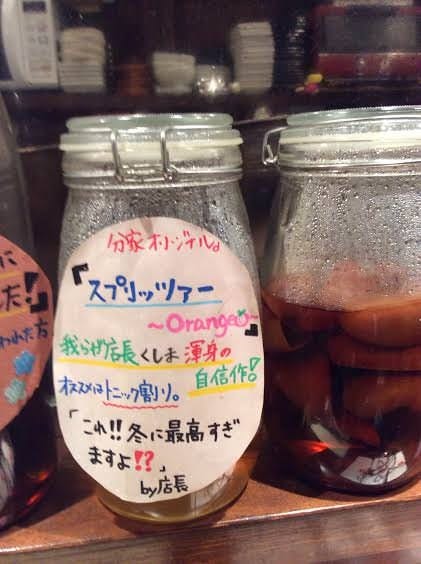 に
た!
われた方
分家オリジナル♪
『スプリッツァー
~Orange~』
我らが店長くしま 渾身の
自信作!
オススメはトニック割り。
「これ!!冬に最高すぎ
ますよ!?」
by店長